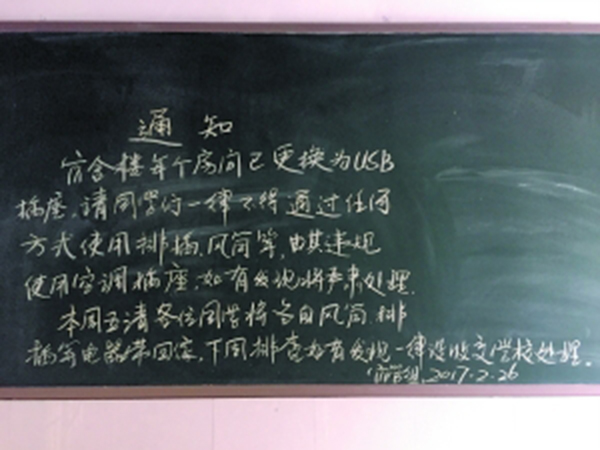 通知
宿舍楼每个房间已更换为USB
插座,请同学们一律不得通过任何
方式使用排插、风筒等,由其违规
使用空调插座,如有发现将严肃处理.
本周五请各位同学将各自风筒、排
插等电器带回家,下周排查如有发现一律没收交学校处理.
宿管组.2017.2.26